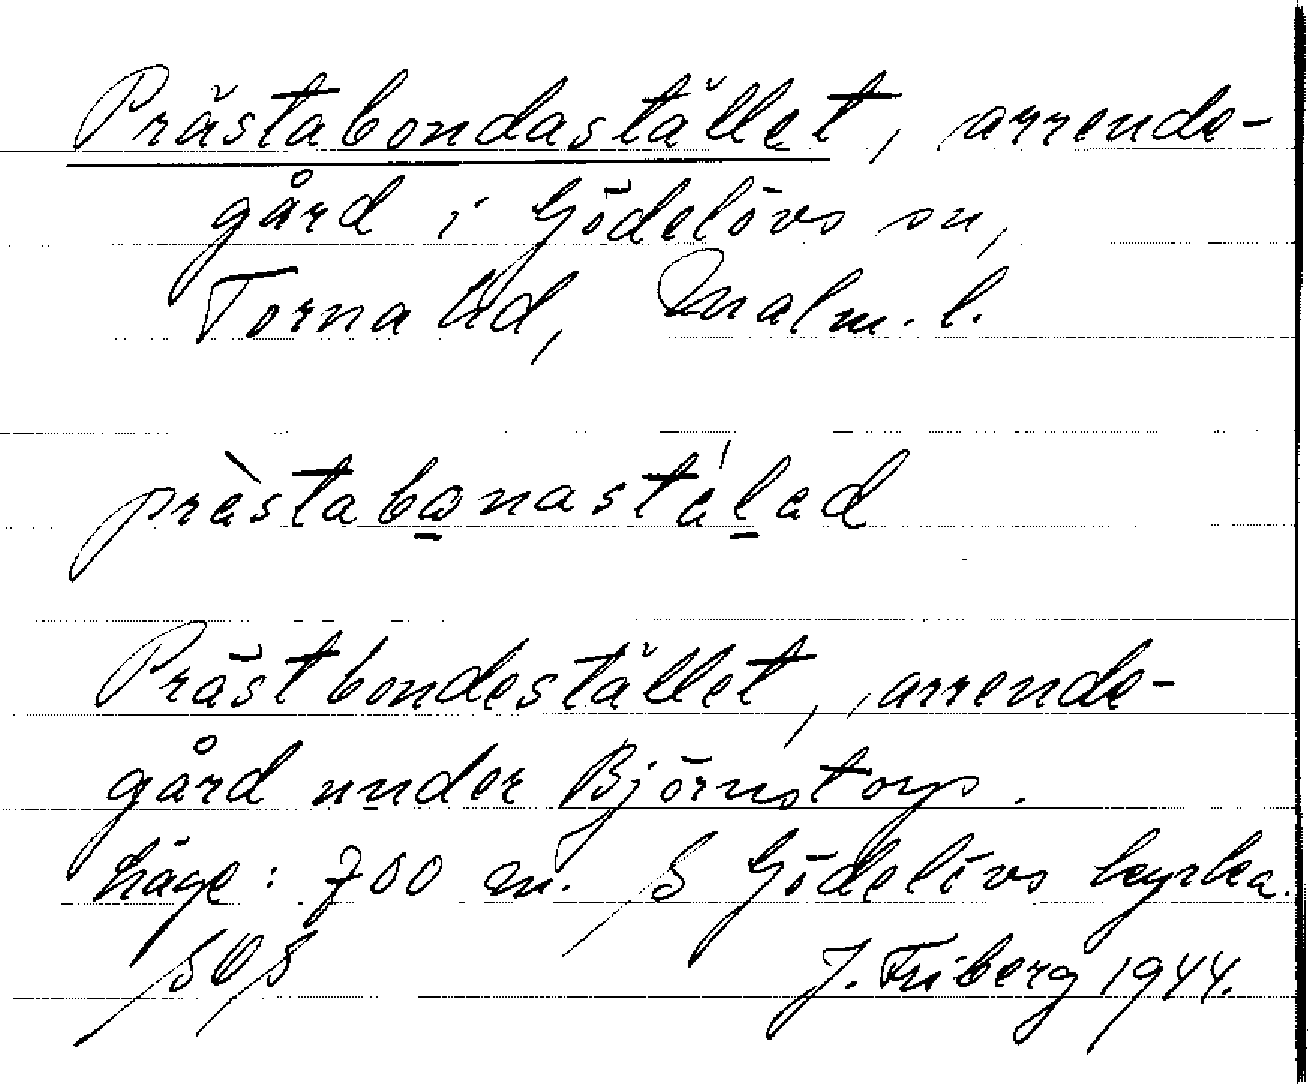 Prästabondastället, arrende-
gård i Gödelövs sn,
Torna hd, Malm. l.
prὲstabωnastɛ́led
Prästbondestället, arrende-
gård under Björnstorp.
Läge: 700 m. S Gödelövs kyrka.
SOS J. Friberg 1944.